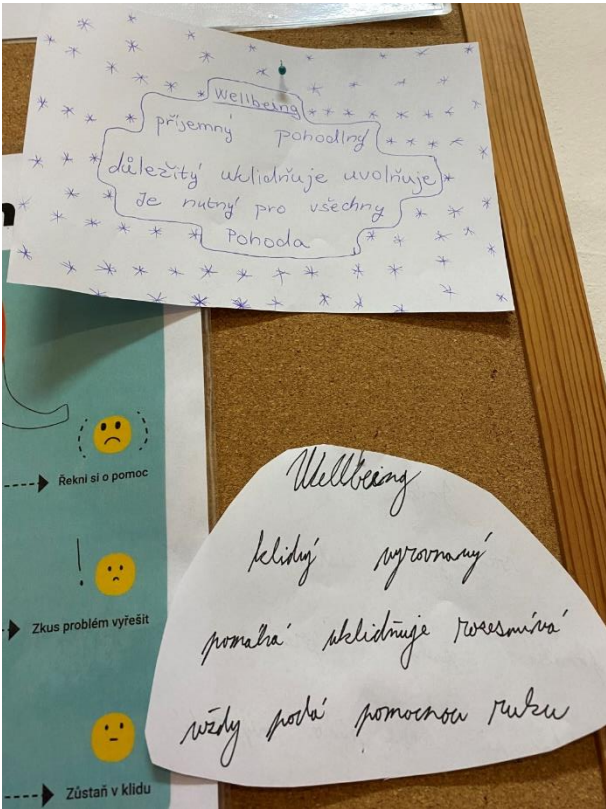 Wellbeing
příjemný pohodlný
důležitý uklidňuje uvolňuje
Je nutný pro všechny
Pohoda
Řekni si o pomoc
Zkus problém vyřešit
Zůstaň v klidu
Wellbeing
klidný vyrovnaný
pomáhá uklidňuje rozesmívá
vždy podá pomocnou ruku